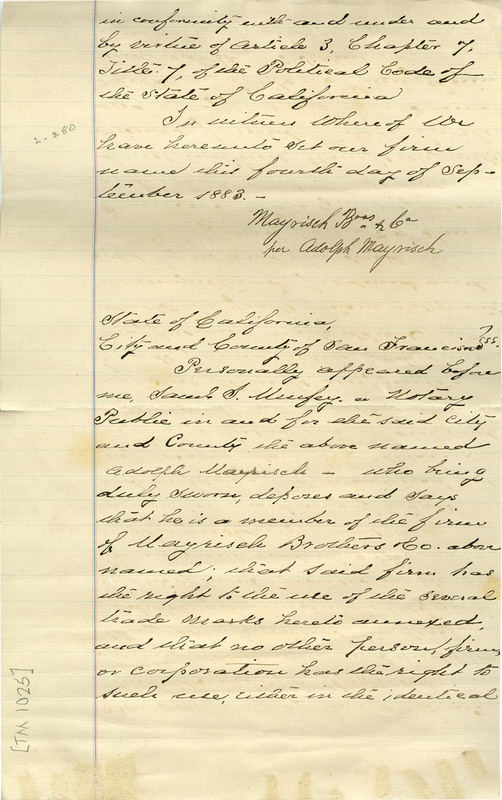 in conformity with and under and
by virtue of Article 3, Chapter 7,
Title 7, of the Political Code of
the State of California
In witness whereof We
have hereunto set our firm
name this fourth day of Sep-
tember 1883. -
Mayrisch Bros & Co
per Adolph Mayrisch
2-280
State of California,
City and County of San Francisco } ss.
Personally appeared before
me, Saml S. Murfey, a Notary
Public in and for the said City
and County the above named
Adolph Mayrisch - who being
duly sworn, deposes and says
that he is a member of the firm
of Mayrisch Brothers & Co. above
named; that said firm has
the right to the use of the several
trade marks hereto annexed,
and that no other person, firm,
or corporation has the right to
such use, either in the identical
[TM 1025]